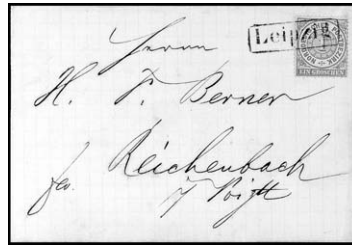 Leipzig
EIN GROSCHEN
Herrn
H. F. Berner
Reichenbach
i/Voigtl